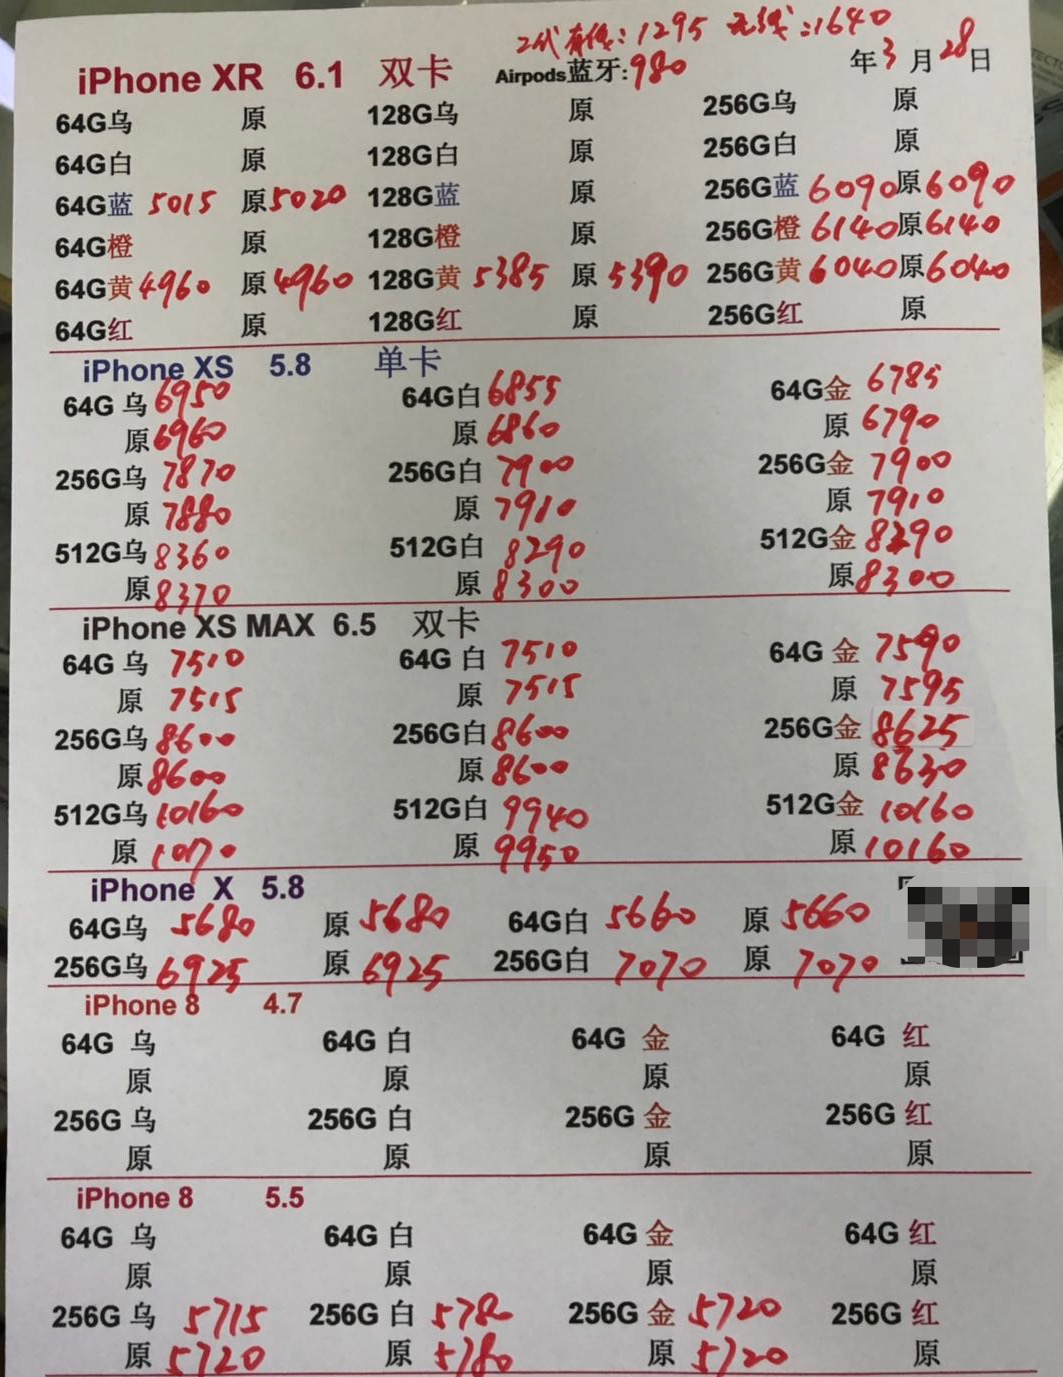 二代有线：1295 无线：1640
iPhone XR 6.1 双卡 Airpods蓝牙:980 年3月28日
64G乌 原 128G乌 原 256G乌 原
64G白 原 128G白 原 256G白 原
64G蓝 5015 原5020 128G蓝 原 256G蓝 6090 原6090
64G橙 原 128G橙 原 256G橙 6140 原6140
64G黄 4960 原4960 128G黄 5385 原 5390 256G黄 6040 原6040
64G红 原 128G红 原 256G红 原
iPhone XS 5.8 单卡
64G 乌 6950 64G白 6855 64G金 6785
原 6960 原 6860 原 6790
256G乌 7870 256G白 7900 256G金 7900
原 7880 原 7910 原 7910
512G乌 8360 512G白 8290 512G金 8290
原 8370 原 8300 原 8300
iPhone XS MAX 6.5 双卡
64G 乌 7510 64G 白 7510 64G 金 7590
原 7515 原 7515 原 7595
256G乌 8600 256G白 8600 256G金 8625
原 8600 原 8600 原 8630
512G乌 10160 512G白 9940 512G金 10160
原 原 9950 原 10160
iPhone X 5.8
64G乌 5680 原 5680 64G白 5660 原 5660
256G乌 6925 原 6925 256G白 7070 原 7070
iPhone 8 4.7
64G 乌 64G 白 64G 金 64G 红
原 原 原 原
256G 乌 256G 白 256G 金 256G 红
原 原 原 原
iPhone 8 5.5
64G 乌 64G 白 64G 金 64G 红
原 原 原 原
256G 乌 5715 256G 白 5780 256G 金 5720 256G 红
原 5720 原 5780 原 5720 原